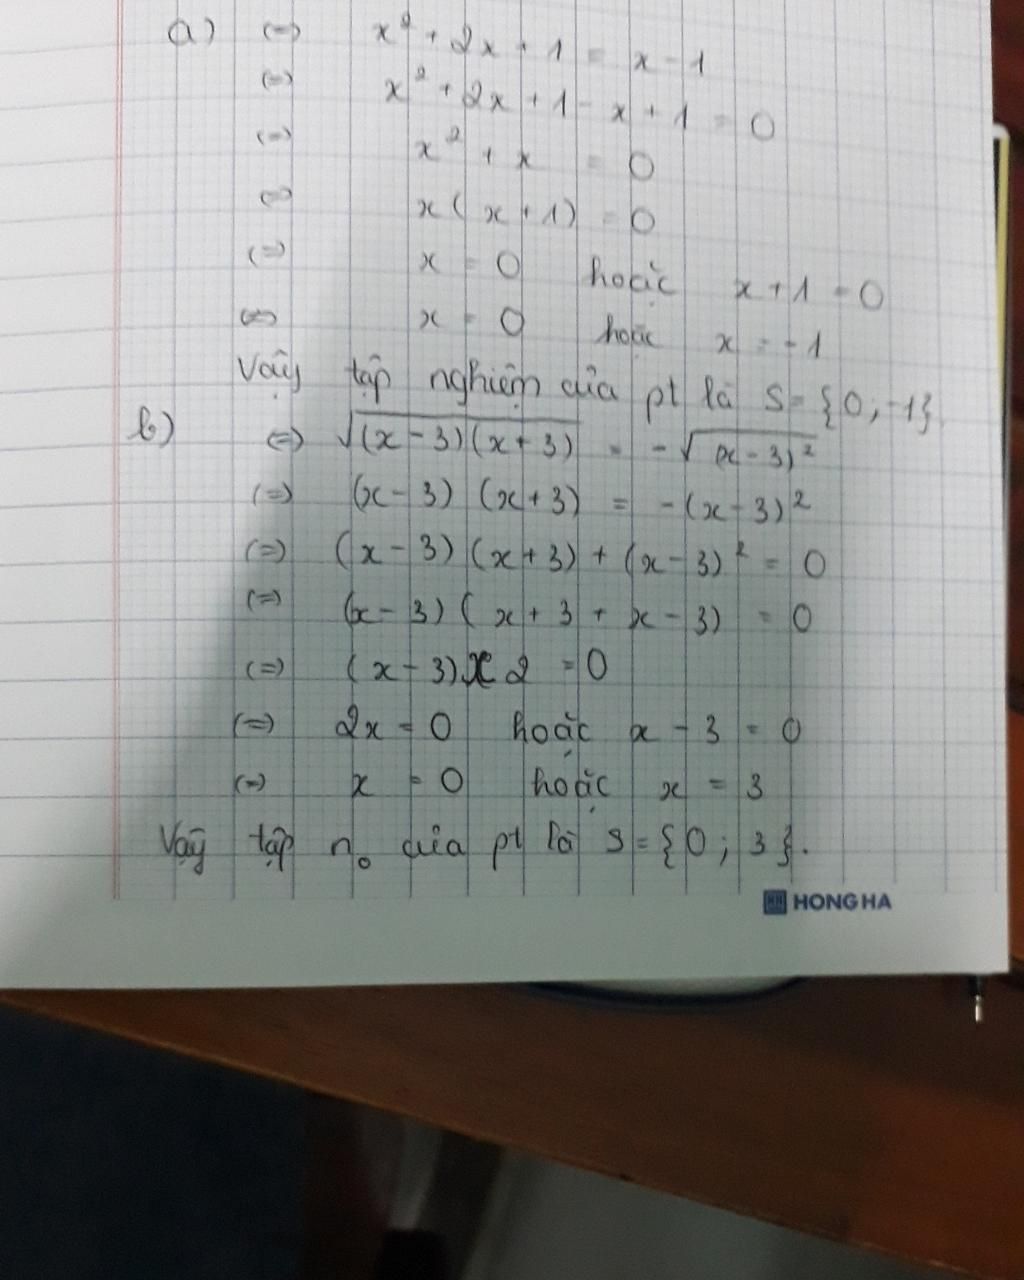 a) (=) x² + 2x + 1 = x - 1
(=) x² + 2x + 1 - x + 1 = 0
(=) x² + x = 0
(=) x(x + 1) = 0
(=) x = 0 hoặc x + 1 = 0
(=) x = 0 hoặc x = -1
Vậy tập nghiệm của pt là S = {0, -1}
b) (=) √(x - 3)(x + 3) = -√(x - 3)²
(=) (x - 3) (x + 3) = -(x - 3)²
(=) (x - 3) (x + 3) + (x - 3)² = 0
(=) (x - 3) ( x + 3 + x - 3) = 0
(=) (x - 3)x2 = 0
(=) 2x = 0 hoặc x - 3 = 0
(=) x = 0 hoặc x = 3
Vậy tập no của pt là S = {0 ; 3}.
HONG HA